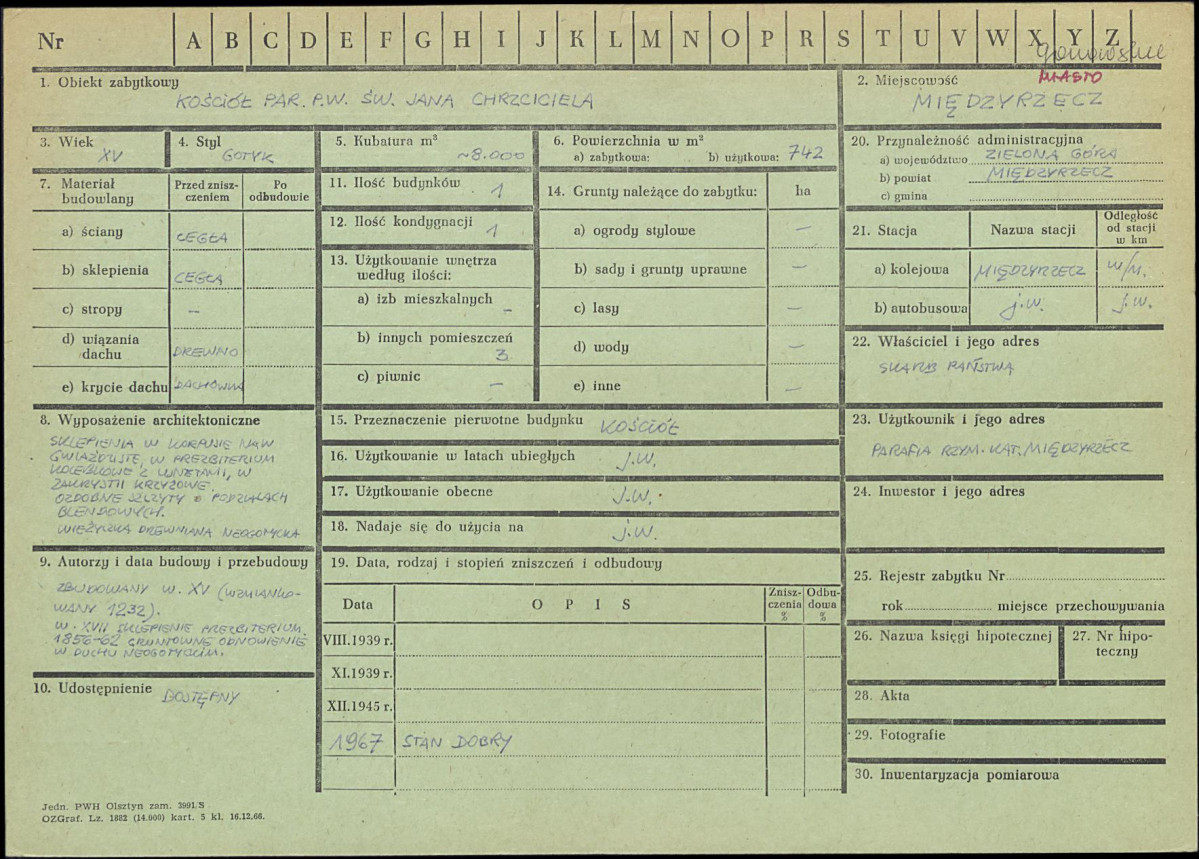 Nr A B C D E F G H I J K L M N O P R S T U V W X Y Z
1. Obiekt zabytkowy
KOŚCIÓŁ PAR. P.W. ŚW. JANA CHRZCICIELA
2. Miejscowość
MIASTO
MIĘDZYRZECZ
3. Wiek
XV
4. Styl
GOTYK
5. Kubatura m³
~8.000
6. Powierzchnia w m²
a) zabytkowa: b) użytkowa: 742
20. Przynależność administracyjna
a) województwo ZIELONA GÓRA
b) powiat MIĘDZYRZECZ
c) gmina
7. Materiał budowlany
Przed zniszczeniem
Po odbudowie
a) ściany CEGŁA
b) sklepienia CEGŁA
c) stropy –
d) wiązania dachu DREWNO
e) krycie dachu DACHÓWKA
11. Ilość budynków 1
12. Ilość kondygnacji 1
13. Użytkowanie wnętrza według ilości:
a) izb mieszkalnych –
b) innych pomieszczeń 3
c) piwnic –
14. Grunty należące do zabytku: ha
a) ogrody stylowe –
b) sady i grunty uprawne –
c) lasy –
d) wody –
e) inne –
21. Stacja
Nazwa stacji
Odległość od stacji w km
a) kolejowa MIĘDZYRZECZ w/m.
b) autobusowa j.w. j.w.
22. Właściciel i jego adres
SKARB PAŃSTWA
8. Wyposażenie architektoniczne
SKLEPIENIA W KORPUSIE NAW
GWIAŹDZISTE, W PREZBITERIUM
KOLEBKOWE Z LUNETAMI, W
ZAKRYSTII KRZYŻOWE.
OZDOBNE SZCZYTY O PODZIAŁACH
BLENDOWYCH.
WIEŻYCZKA DREWNIANA NEOGOTYCKA
15. Przeznaczenie pierwotne budynku KOŚCIÓŁ
16. Użytkowanie w latach ubiegłych J.W.
17. Użytkowanie obecne J.W.
18. Nadaje się do użycia na j.w.
23. Użytkownik i jego adres
PARAFIA RZYM. KAT. MIĘDZYRZECZ
24. Inwestor i jego adres
9. Autorzy i data budowy i przebudowy
ZBUDOWANY W. XV (WZMIANKO-
WANY 1232).
W. XVII SKLEPIENIE PREZBITERIUM.
1856-62 GRUNTOWNE ODNOWIENIE
W DUCHU NEOGOTYCKIM.
19. Data, rodzaj i stopień zniszczeń i odbudowy
Data
O P I S
Zniszczenia %
Odbudowa %
VIII.1939 r.
XI.1939 r.
XII.1945 r.
1967 STAN DOBRY
25. Rejestr zabytku Nr
rok miejsce przechowywania
26. Nazwa księgi hipotecznej
27. Nr hipoteczny
10. Udostępnienie DOSTĘPNY
28. Akta
29. Fotografie
30. Inwentaryzacja pomiarowa
Jedn. PWH Olsztyn zam. 3991/S
OZGraf. Lz. 1882 (14.000) kart. 5 kl. 16.12.66.